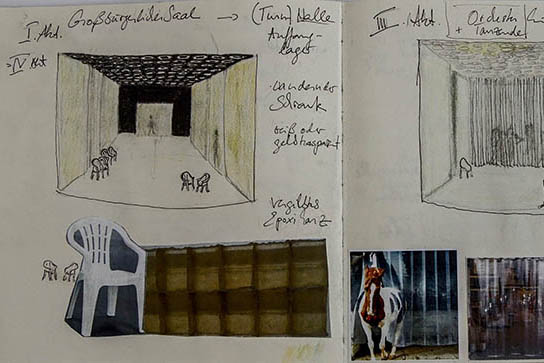 I. Akt. Großbürgerlicher Saal → (Turn) Halle
Auffang-
lager
IV Akt
wandernder
Schrank
weiß oder
gelbtransparent
vergilbtes
Epoxiharz
III. Akt. Orchester
+ Tanzende